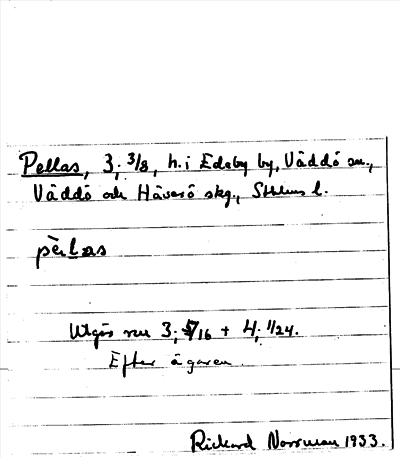 Pellas, 3; 3/8, h. i Edeby by, Väddö sn.,
Väddö och Häverö skg., Sthlms l.
pèlas
Utgör nu 3; 5/16 + 4; 1/24.
Efter ägaren.
Rickard Norrman 1933.